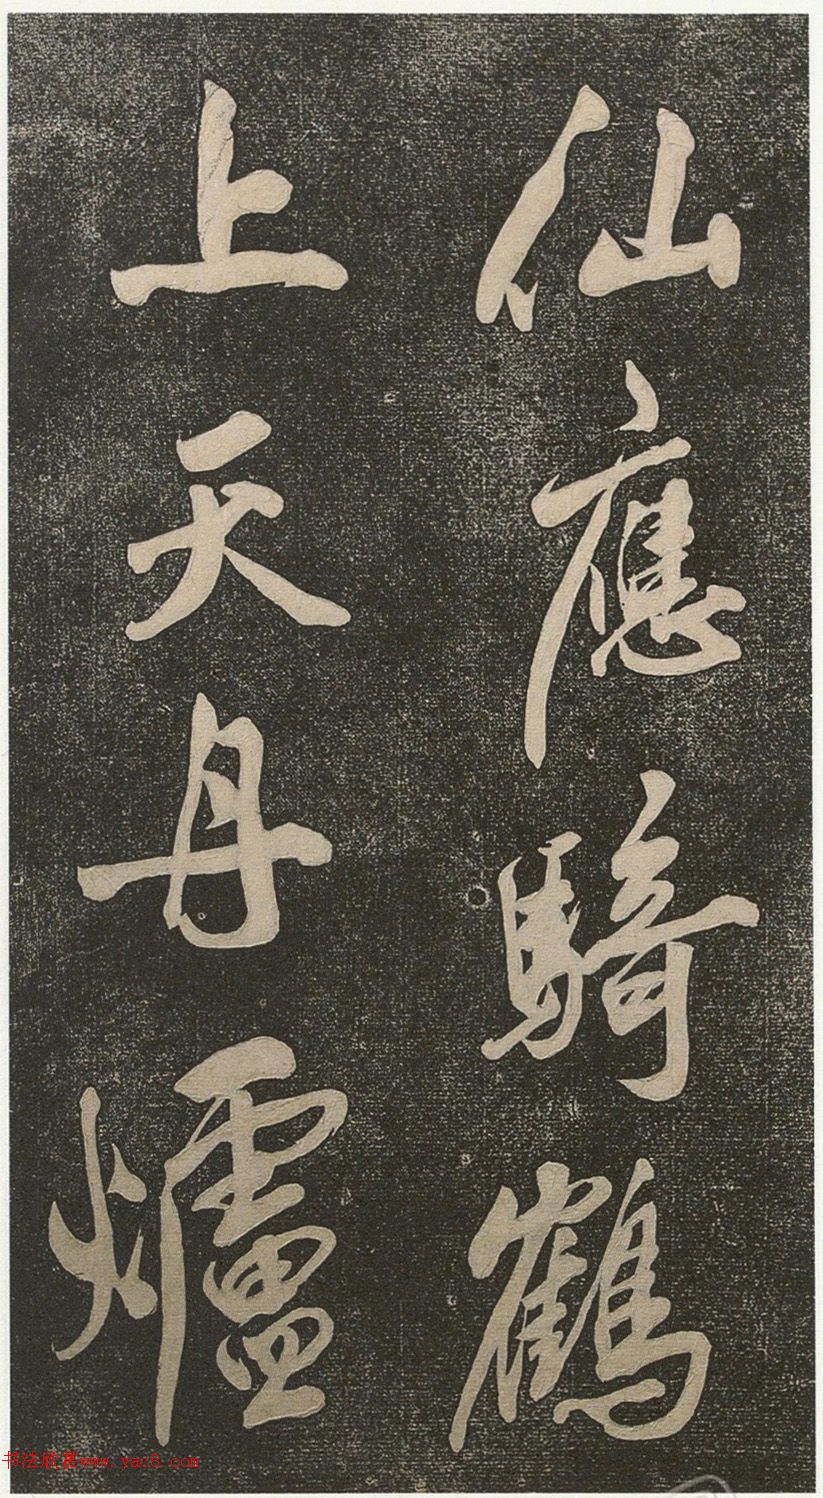 仙應騎鶴
上天丹爐
书法欣赏www.yac8.com